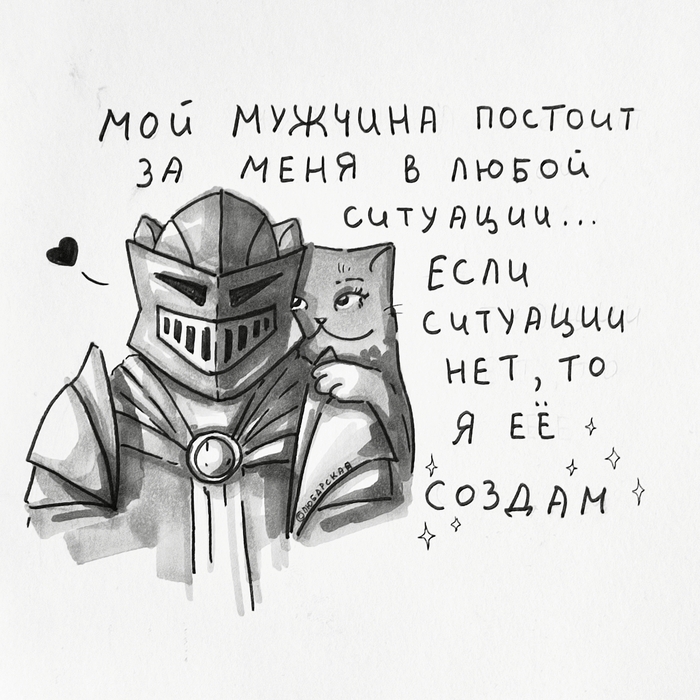 МОЙ МУЖЧИНА ПОСТОИТ
ЗА МЕНЯ В ЛЮБОЙ
СИТУАЦИИ...
ЕСЛИ
СИТУАЦИИ
НЕТ, ТО
Я ЕЁ
СОЗДАМ
©ЛЮБАРСКАЯ